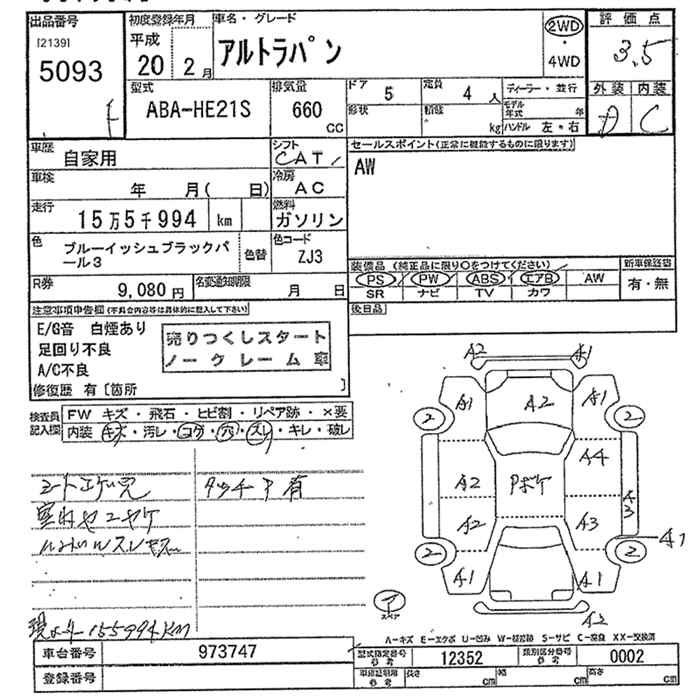 出品番号
[2139]
5093
初度登録年月
平成
20 2月
車名・グレード
アルトラパン
2WD
・
4WD
評価点
3.5
外装 内装
D C
型式
ABA-HE21S
排気量
660
CC
ドア 5
定員 4 人
形状
積載
kg
ディーラー・並行
モデル年式 年
ハンドル 左・右
車歴
自家用
シフト
CAT
セールスポイント(正常に機能するものに限ります)
AW
車検
年 月( 日)
冷房
AC
走行
15万5千994 km
燃料
ガソリン
色
ブルーイッシュブラックパール3
色替
色コード
ZJ3
装備品 (純正品に限り○をつけてください)
PS PW ABS エアB AW
SR ナビ TV カワ
新車保証書
有・無
R券
9,080円
名変通知期限
月 日
後日品
注意事項申告欄(不具合内容等は具体的に記入して下さい)
E/G音 白煙あり
足回り不良
A/C不良
売りつくしスタート
ノークレーム車
修復歴 有 [箇所 ]
検査員記入欄
FW キズ・飛石・ヒビ割・リペア跡・×要
内装 キズ・汚レ・コゲ・穴・スレ・キレ・破レ
タッチP有
現メーター155994KM
A2 A1
A1 A2 A1
2 2
A2 Pボケ A4
A2 A3 A3
2 2 A1
A1 A1
A2
スペア
A-キズ E-エクボ U-凹み W-補修跡 S-サビ C-腐食 XX-交換済
車台番号
973747
型式指定番号
参考
12352
類別区分番号
参考
0002
登録番号
車庫証明用
参考
長さ cm
幅 cm
高さ cm